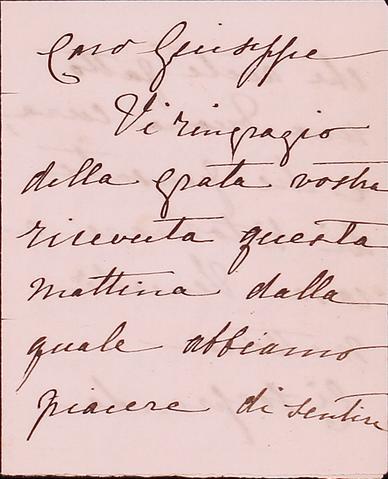 Caro Giuseppe
Vi ringrazio
della grata vostra
ricevuta questa
mattina dalla
quale abbiamo
piacere di sentire